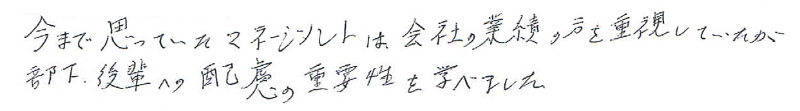 今まで思っていたマネージメントは、会社の業績の方を重視していたが
部下、後輩への配慮の重要性を学べました